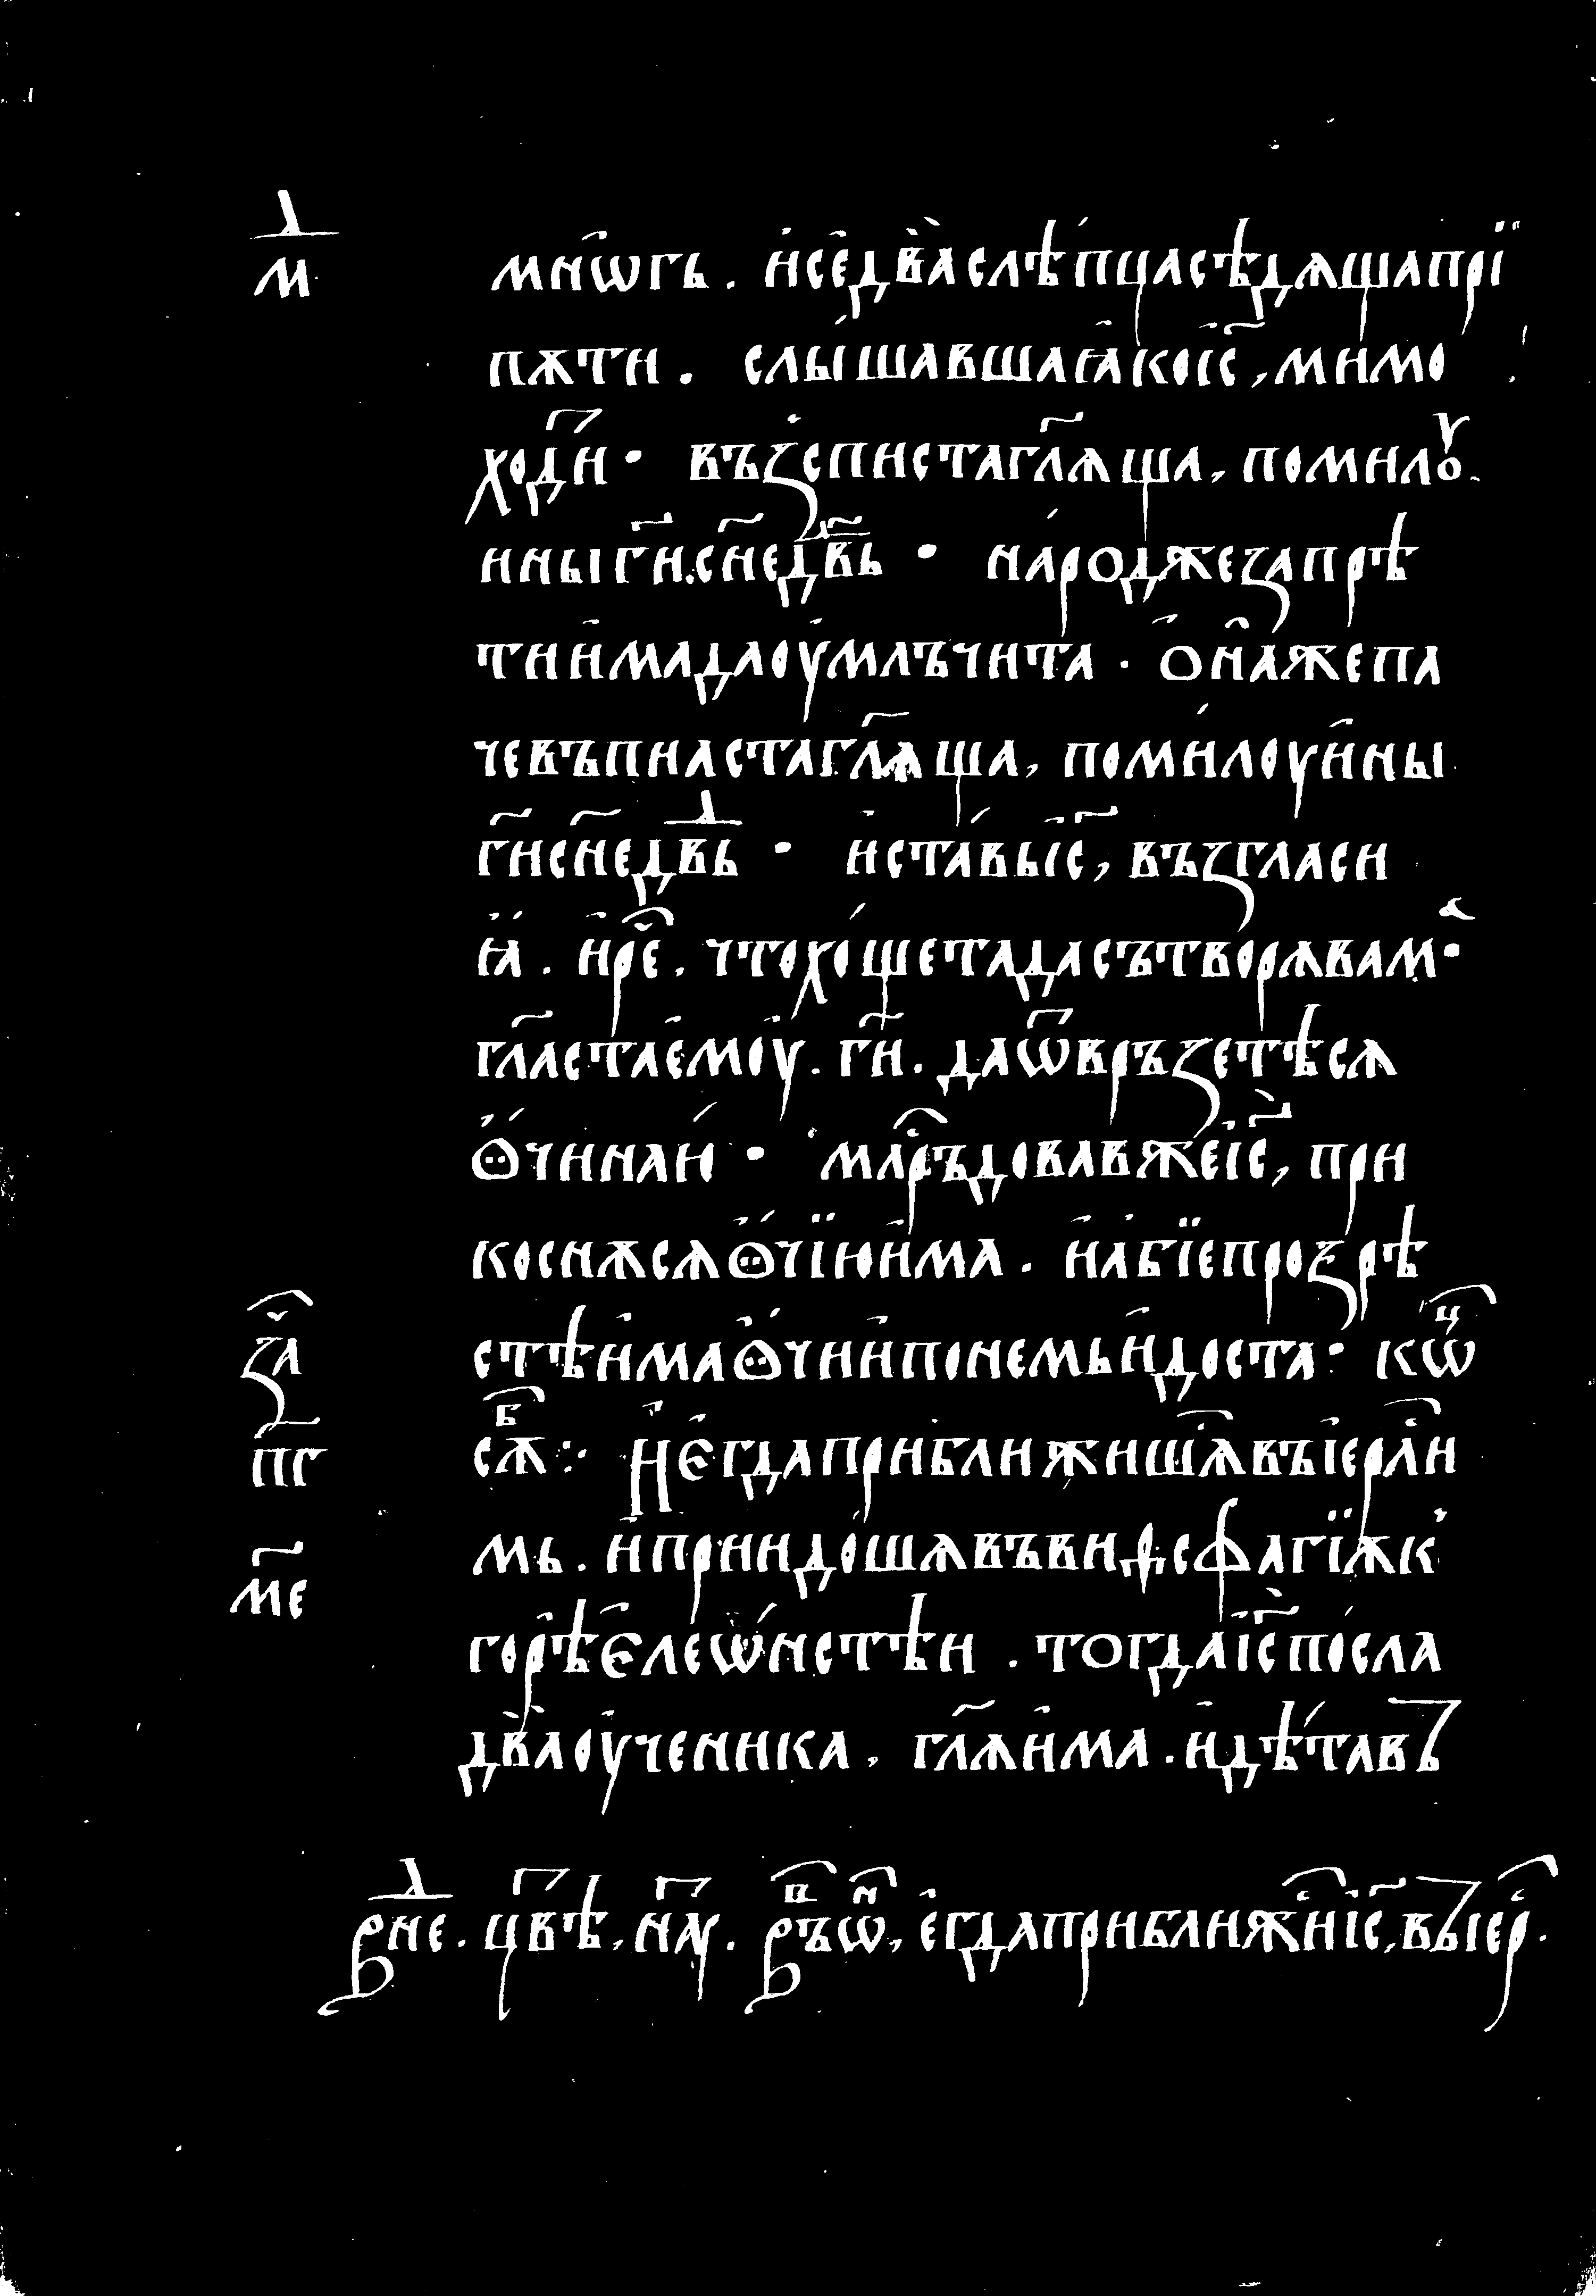 л
м
мнѡгь . и҆се҆два̀слѣ́пцасѣдѧщапрїи
пѫти . слы́шавшаꙗ҆коі҆с҃ , мимо
ходи҃ . въꙁъпистагл҃ѧща , помилꙋ
нныг҃и.сн҃едв҃дь · на́родженꙁапрѣ
тии҆мадаоу҆млъчита . ѻ҆на҆жепа
чевъпиастагл҃ѧща , поми́лоуи҆ны
г҃исн҃едв҃дь · и҆ста́вьі҆с҃ , въꙁгласи
ꙗ҆̀ . и҆рече . чтохо́щетадасътворѧвам
гл҃астае҆моу҆ . г҃и . даѿвръꙁетѣсѧ
ѻ҆́чинаю́ · млрⷭ҇ъдовавжеі҆с҃ , при
коснѫсѧѻ҆́чїюи҆ма . и҆а҆бїепроꙁрѣ
ꙁа҇
стѣи҆маѻ҆́чии҆понемьи҆доста : кѡⷰ
пг
сѫⷠ ⁘ И҆е҆гдаприближишѧвъі҆ерⷭ҇ли
мⷷе
мь . и҆приидо́шѧвъвиѳсфагїѫк
горѣе҆леѡ́нстѣи . тогдаі҆с҃по́сла
два̀оу҆ченика , гл҃ѧи҆ма . и҆дѣ́тавъ
рⷧне . цвⷮѣ , наⷮу . ръⷡѡⷩ , е҆гдаприближиⷭі҆с҃ , въіерⷭ .